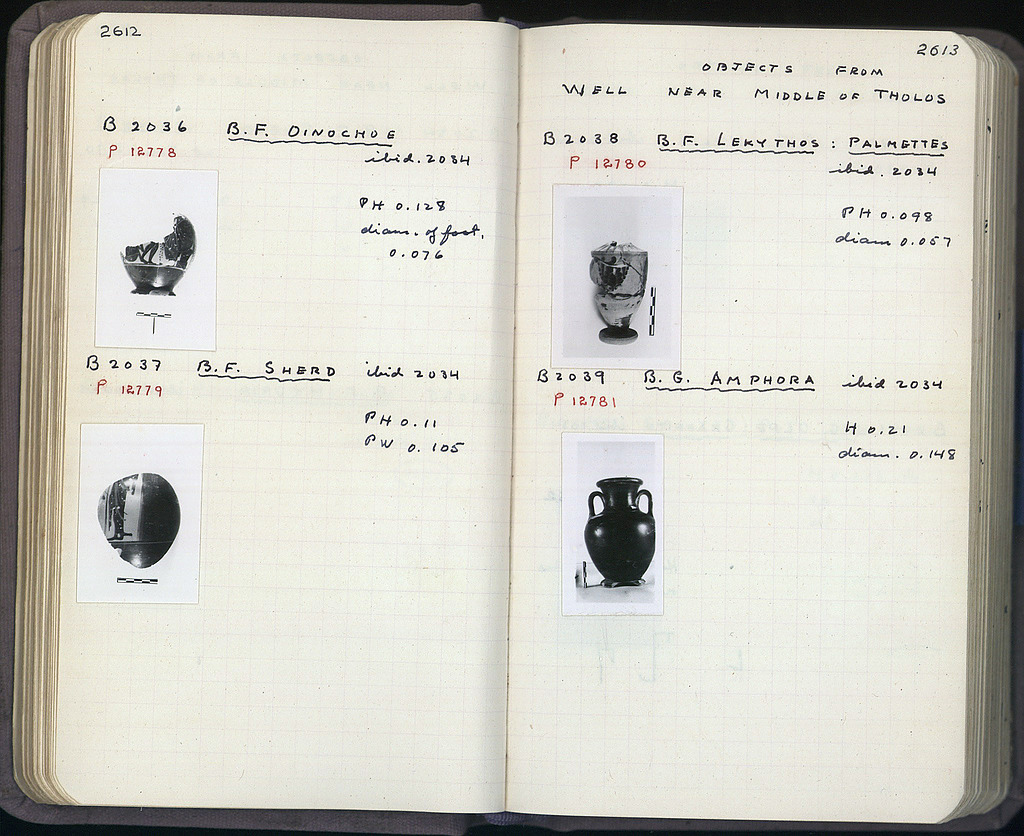 2612
B 2036 B.F. OINOCHOE
P 12778 ibid. 2034
PH 0.128
diam. of foot.
0.076
B 2037 B.F. SHERD ibid 2034
P 12779
PH 0.11
PW 0.105
2613
OBJECTS FROM
WELL NEAR MIDDLE OF THOLOS
B 2038 B.F. LEKYTHOS : PALMETTES
P 12780 ibid. 2034
PH 0.098
diam 0.057
B 2039 B.G. AMPHORA ibid 2034
P 12781
H 0.21
diam. 0.148